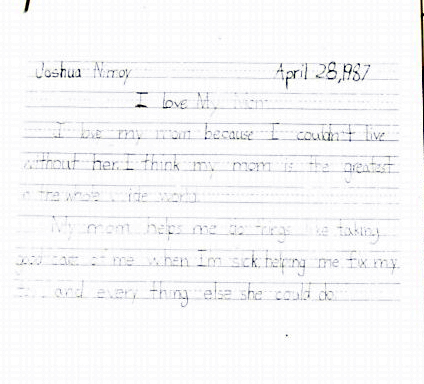 Joshua Nimoy April 28, 1987
I love My Mom
I love my mom because I couldn't live
without her. I think my mom is the greatest
in the whole wide world.
My mom helps me do things like taking
good care of me when I'm sick, helping me fix my
and every thing else she could do.